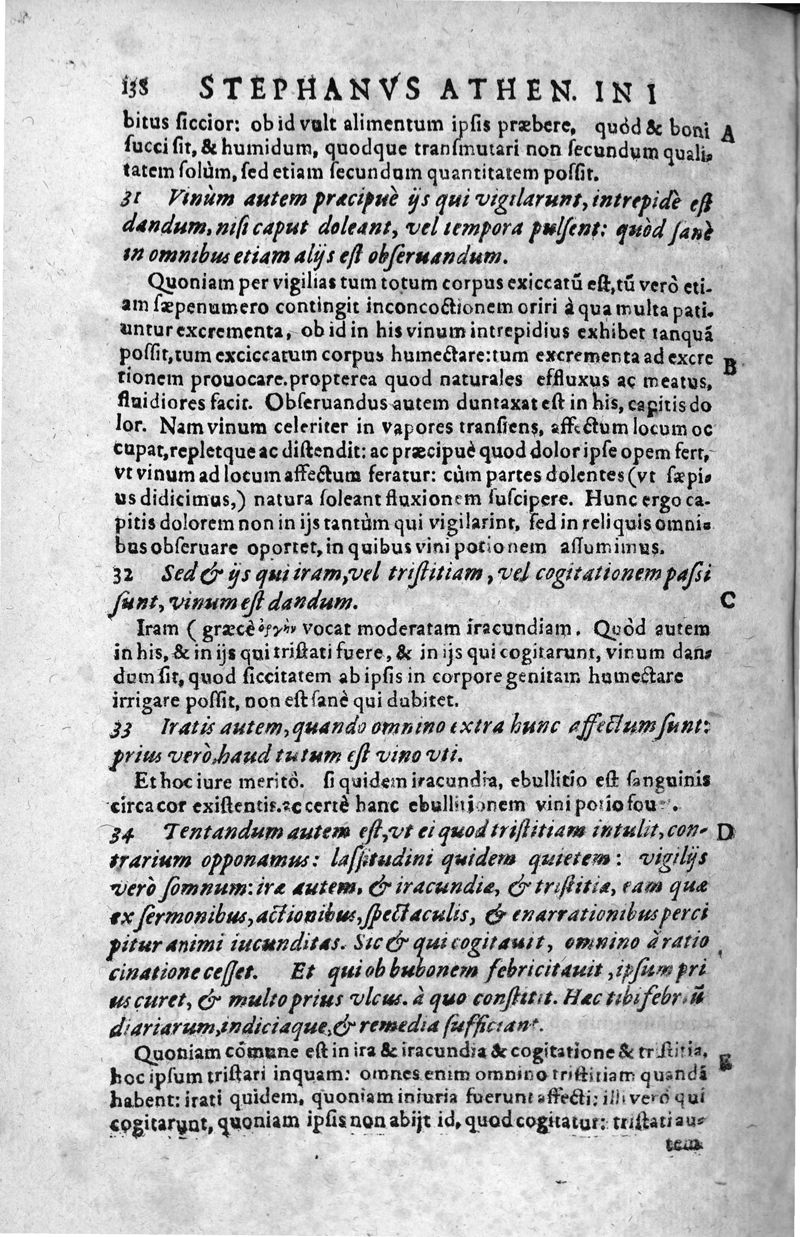 138 STEPHANVS ATHEN. IN I
bitus ſiccior: ob id vult alimentum ipſis præbere, quòd & boni A
ſucci ſit, & humidum, quodque tranſmutari non ſecundum quali-
tatem ſolùm, ſed etiam ſecundum quantitatem poſſit.
31 Vinùm autem præcipuè ijs qui vigilarunt, intrepidè eſt
dandum, niſi caput doleant, vel tempora pulſent: quòd ſanè
in omnibus etiam alijs eſt obſeruandum.
Quoniam per vigilias tum totum corpus exiccatū eſt, tū verò eti-
am ſæpenumero contingit inconcoctionem oriri à qua multa pati-
untur excrementa, ob id in his vinum intrepidius exhibet tanquā
poſſit, tum exciccatum corpus humectare: tum excrementa ad excre B
tionem prouocare. propterea quod naturales effluxus ac meatus,
fluidiores facit. Obſeruandus autem duntaxat eſt in his, capitis do
lor. Nam vinum celeriter in vapores tranſiens, affectum locum oc
cupat, repletque ac diſtendit: ac præcipuè quod dolor ipſe opem fert,
vt vinum ad locum affectum feratur: cùm partes dolentes (vt ſæpi-
us didicimus,) natura ſoleant fluxionem ſuſcipere. Hunc ergo ca-
pitis dolorem non in ijs tantùm qui vigilarint, ſed in reliquis omni-
bus obſeruare oportet, in quibus vini potionem aſſumimus.
32 Sed & ijs qui iram, vel triſtitiam, vel cogitationem paſſi
ſunt, vinum eſt dandum. C
Iram (græcè ὀργὴν vocat moderatam iracundiam. Quòd autem
in his, & in ijs qui triſtati fuere, & in ijs qui cogitarunt, vinum dan-
dum ſit, quod ſiccitatem ab ipſis in corpore genitam humectare
irrigare poſſit, non eſt ſanè qui dubitet.
33 Iratis autem, quando omnino extra hunc affectum ſunt:
prius verò, haud tutum eſt vino vti.
Et hoc iure meritò. ſi quidem iracundia, ebullitio eſt ſanguinis
circa cor exiſtentis. ac certè hanc ebullitionem vini potio
34 Tentandum autem eſt, vt ei quod triſtitiam intulit, con- D
trarium opponamus: laſſitudini quidem quietem: vigilijs
verò ſomnum: iræ autem, & iracundiæ, & triſtitiæ, eam quæ
ex ſermonibus, actionibus, ſpectaculis, & enarrationibus perci
pitur animi iucunditas. Sic & qui cogitauit, omnino à ratio
cinatione ceſſet. Et qui ob bubonem febricitauit, ipſum pri
us curet, & multo prius vlcus. à quo conſtitit. Hac tibi febriū
diariarum, indiciaque, & remedia ſufficiant.
Quoniam cōmune eſt in ira & iracundia & cogitatione & triſtitia, E
hoc ipſum triſtari inquam: omnes enim omnino triſtitiam quandā
habent: irati quidem, quoniam iniuria fuerunt affecti: illi verò qui
cogitarunt, quoniam ipſis non abijt id, quod cogitatur: triſtati au-
tem